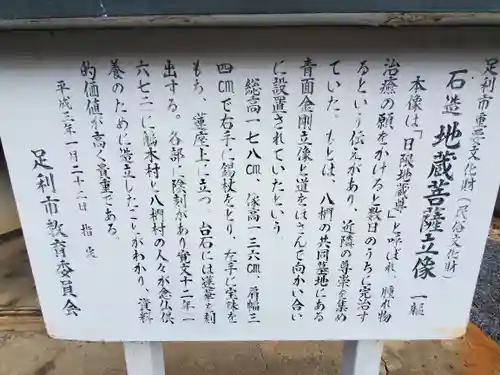 足利市重要文化財（民俗文化財）
石造 地蔵菩薩立像 一軀
本像は「日限地蔵尊」と呼ばれ、腫れ物
治療の願をかけると数日のうちに完治す
るという伝えがあり、近隣の尊崇を集め
ていた。もとは、八椚の共同墓地にある
青面金剛立像と道をはさんで向かい合い
に設置されていたという。
総高一七八㎝、像高一三六㎝、肩幅三
四㎝で右手に錫杖をとり、左手に宝珠を
もち、蓮座上に立つ。台石には蓮華を刻
出する。各部に陰刻があり寛文十二年一
六七二に鵤木村と八椚村の人々が念仏供
養のために造立したことがわかり、資料
的価値が高く貴重である。
平成三年一月二十二日 指定
足利市教育委員会